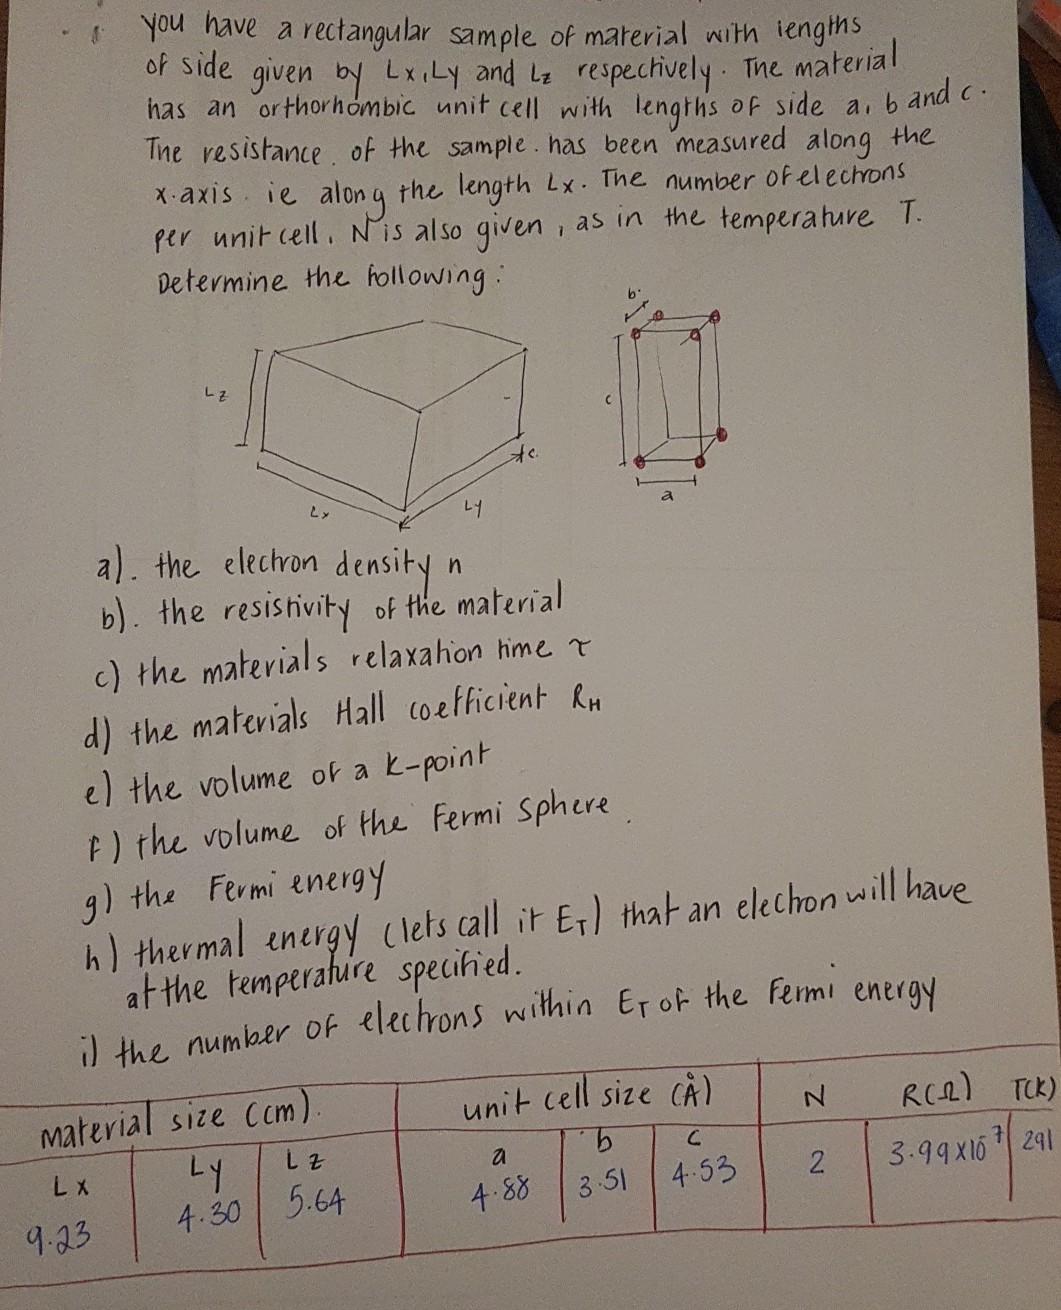 you have a rectangular sample of material with lengths
of side given by Lx, Ly and Lz respectively. The material
has an orthorhombic unit cell with lengths of side a, b and c.
The resistance. of the sample. has been measured along the
x.axis. ie along the length Lx. The number of electrons
per unit cell, N is also given, as in the temperature T.
Determine the following:
b
Lz
c
c
Lx
Ly
a
a). the electron density n
b). the resistivity of the material
c) the materials relaxation time τ
d) the materials Hall coefficient RH
e) the volume of a k-point
f) the volume of the Fermi sphere.
g) the Fermi energy
h) thermal energy (lets call it ET) that an electron will have
at the temperature specified.
i) the number of electrons within ET of the Fermi energy
material size (cm). unit cell size (Å) N R(Ω) T(K)
Lx Ly Lz a b c
9.23 4.30 5.64 4.88 3.51 4.53 2 3.99x10⁻⁷ 291